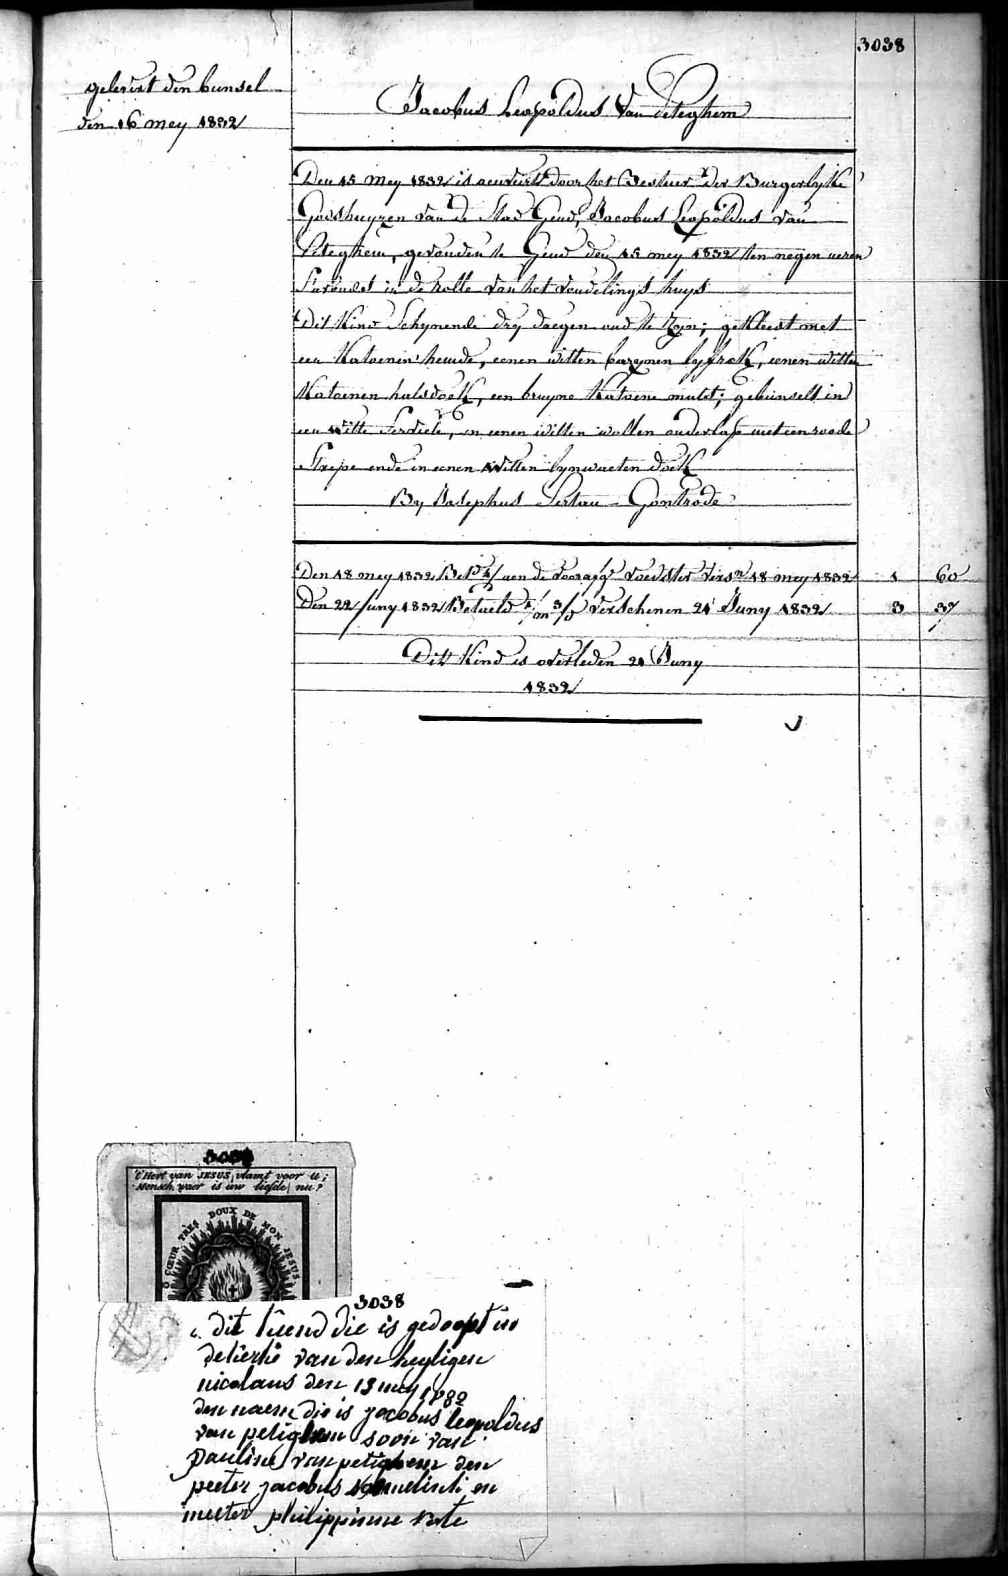 3038
gelevert den bunsel
den 16 mey 1832
Jacobus Leopoldus Van Peteghem
Den 15 mey 1832 is aenveirt door het Bestuer der Burgerlyke
Godshuyzen van de Stad Gend, Jacobus Leopoldus van
Peteghem, gevonden te Gend den 15 mey 1832 ten negen ueren
s'avonds in de rolle van het vondelings huys
Dit Kind Schynende dry daegen oud te zyn; gekleed met
een Katoenen hemde, eenen witten bazynen lyfrok, eenen witten
Katoenen halsdoek, een bruyne Katoene muts; gebunselt in
een witte, en eenen witten wollen onderlap met een roode
Strepe ende in eenen witten lynwaeten doek
By Josephus Gontrode
Den 18 mey 1832 aen de voorzeg voedster vers 18 mey 1832 1 60
Den 22 Juny 1832 Betaeld verschenen 21 Juny 1832 3 37
Dit Kind is overleden 21 Juny
1832
3038
't Hert van JESUS, vlamt voor u;
Mensch, waer is uw liefde nu?
O CŒUR TRÈS DOUX DE MON JESUS
3038
dit kiend die is gedoopt in
de kerke van den heyligen
nicolaus den 13 mey 1832
den naem die is jacobus leopoldus
van petighem soon van
Pauline van petighem den
peeter jacobus en
meeter philippinne